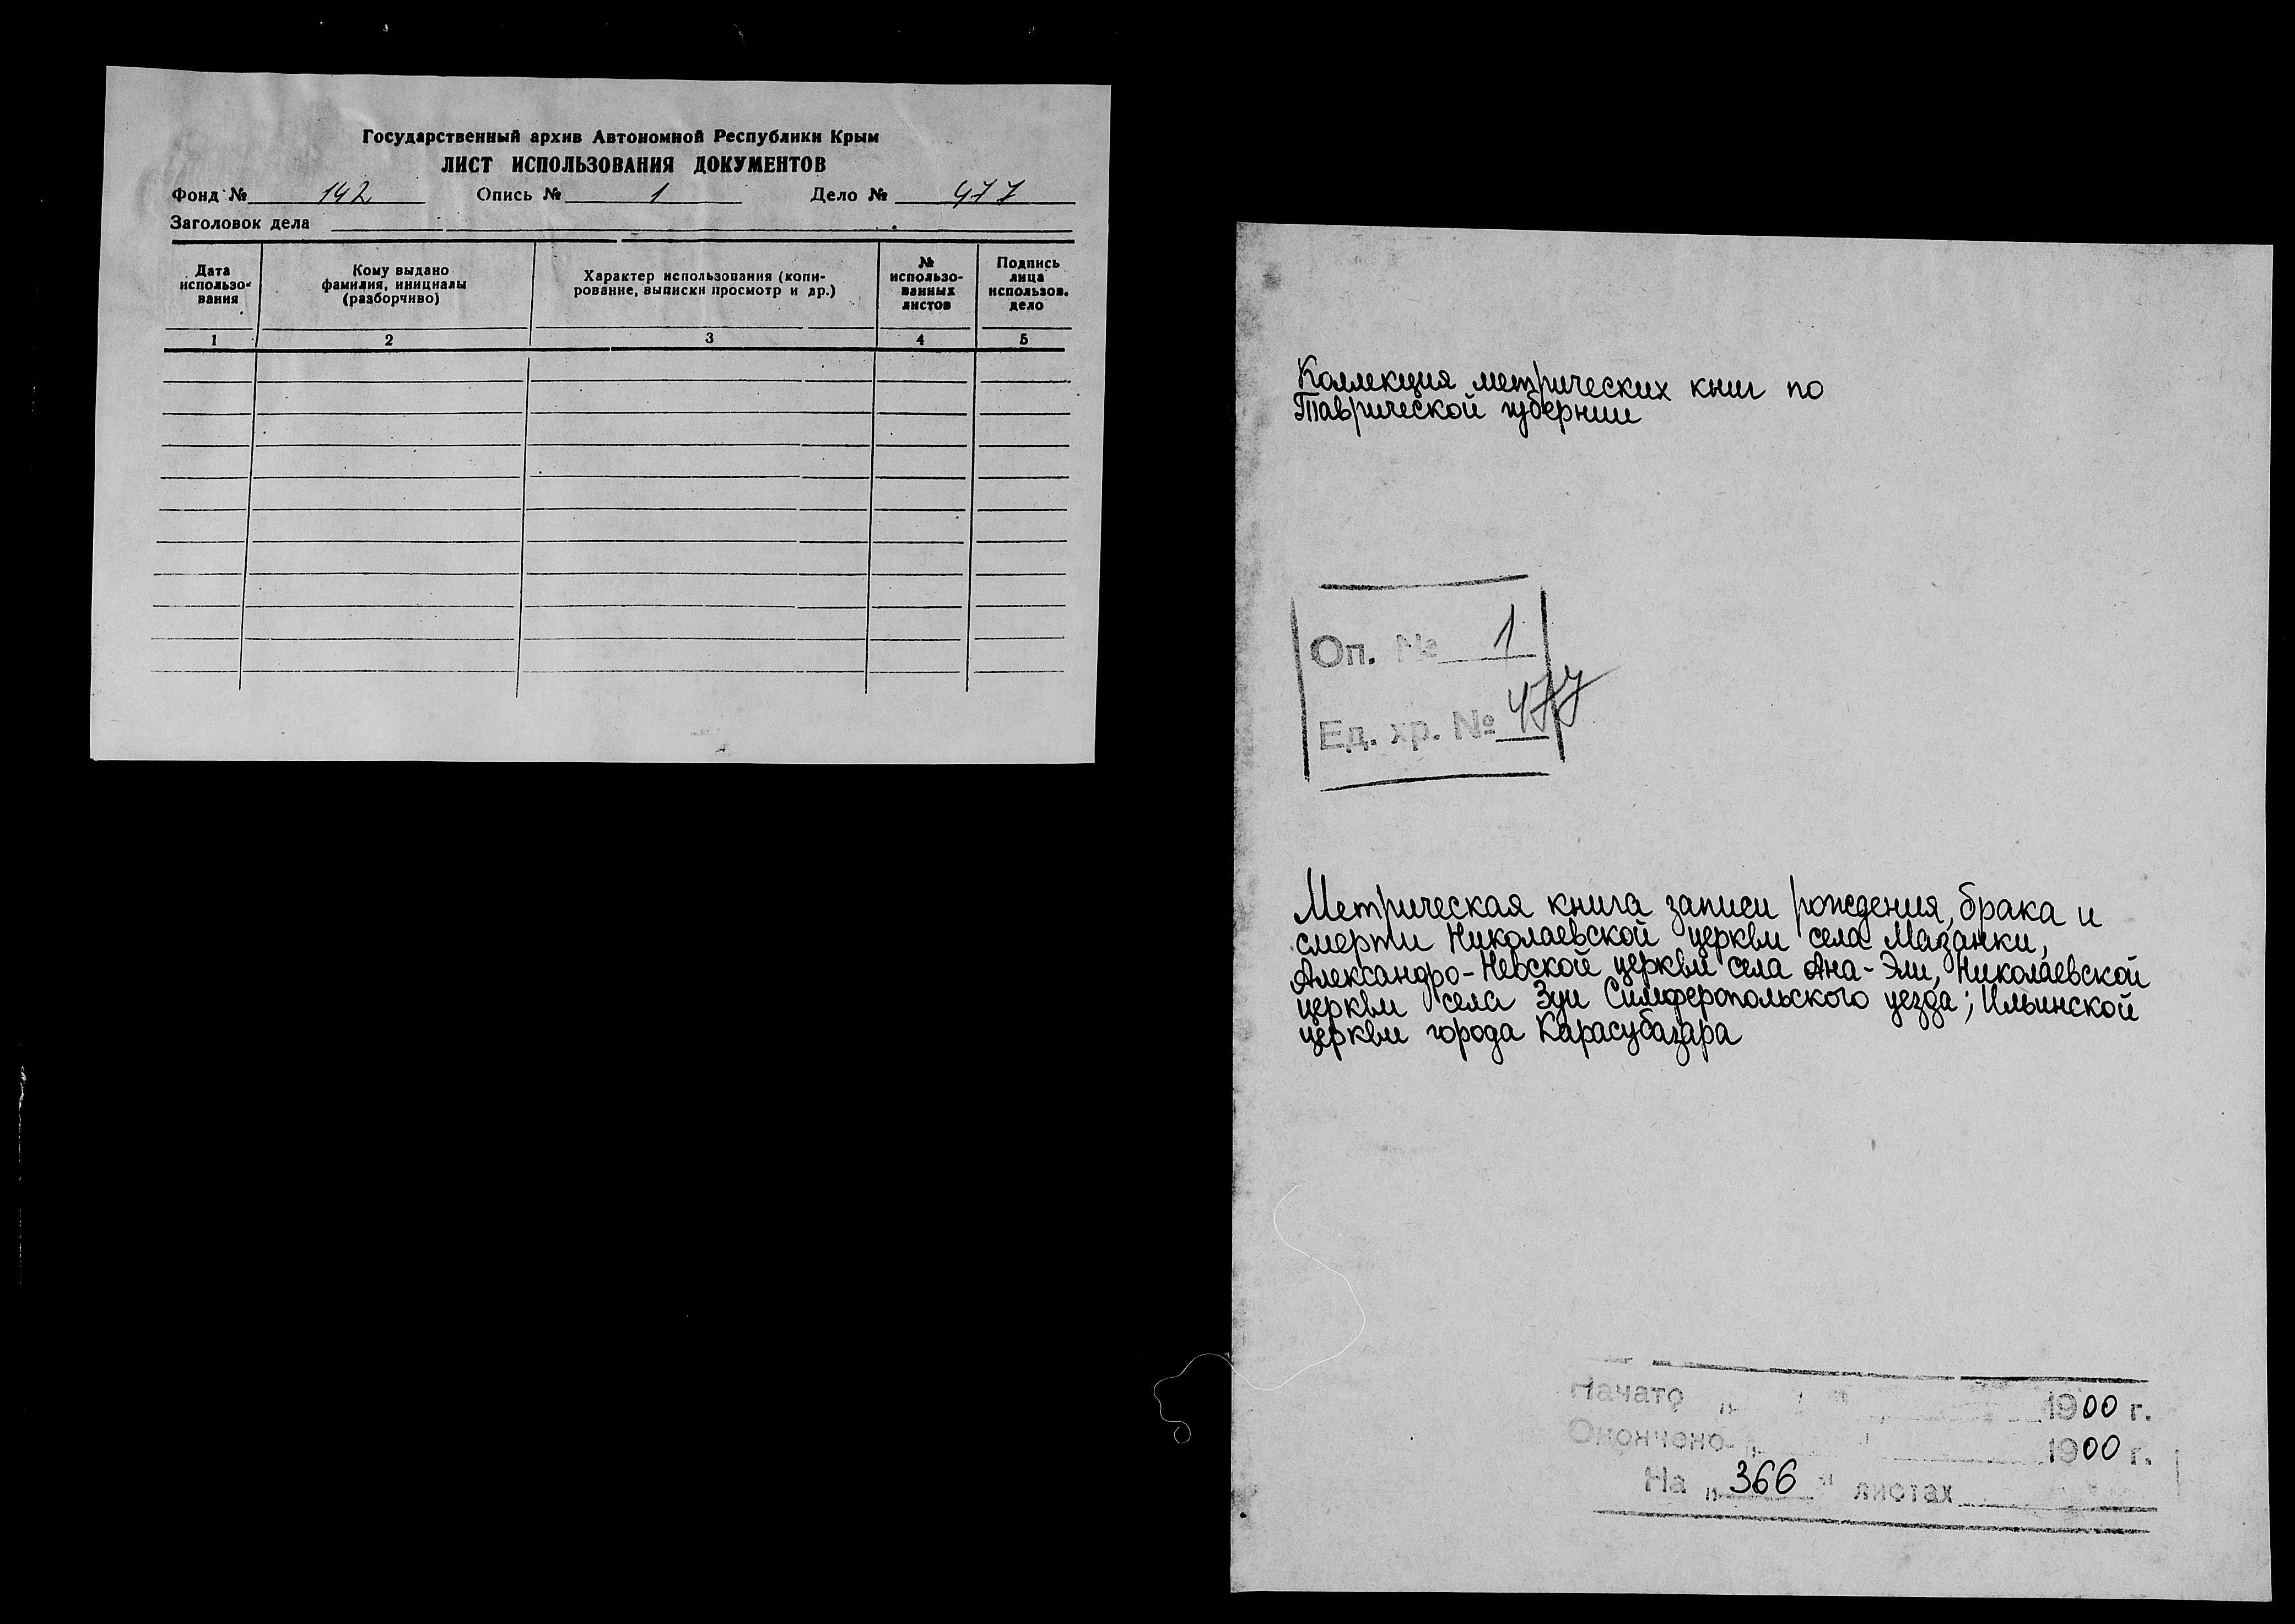 Государственный архив Автономной Республики Крым
ЛИСТ ИСПОЛЬЗОВАНИЯ ДОКУМЕНТОВ
Фонд № 142 Опись № 1 Дело № 477
Заголовок дела
Дата использо-вания
Кому выдано фамилия, инициалы (разборчиво)
Характер использования (копи-рование, выписки просмотр и др.)
№ использо-ванных листов
Подпись лица использов. дело
1 2 3 4 5
Коллекция метрических книг по
Таврической губернии
Оп. № 1
Ед. хр. № 477
Метрическая книга записи рождения, брака и
смерти Николаевской церкви села Мазанки,
Александро-Невской церкви села Ана-Эли, Николаевской
церкви села Зуи Симферопольского уезда; Ильинской
церкви города Карасубазара
Начато " " 1900 г.
Окончено " " 1900 г.
На "366" листах